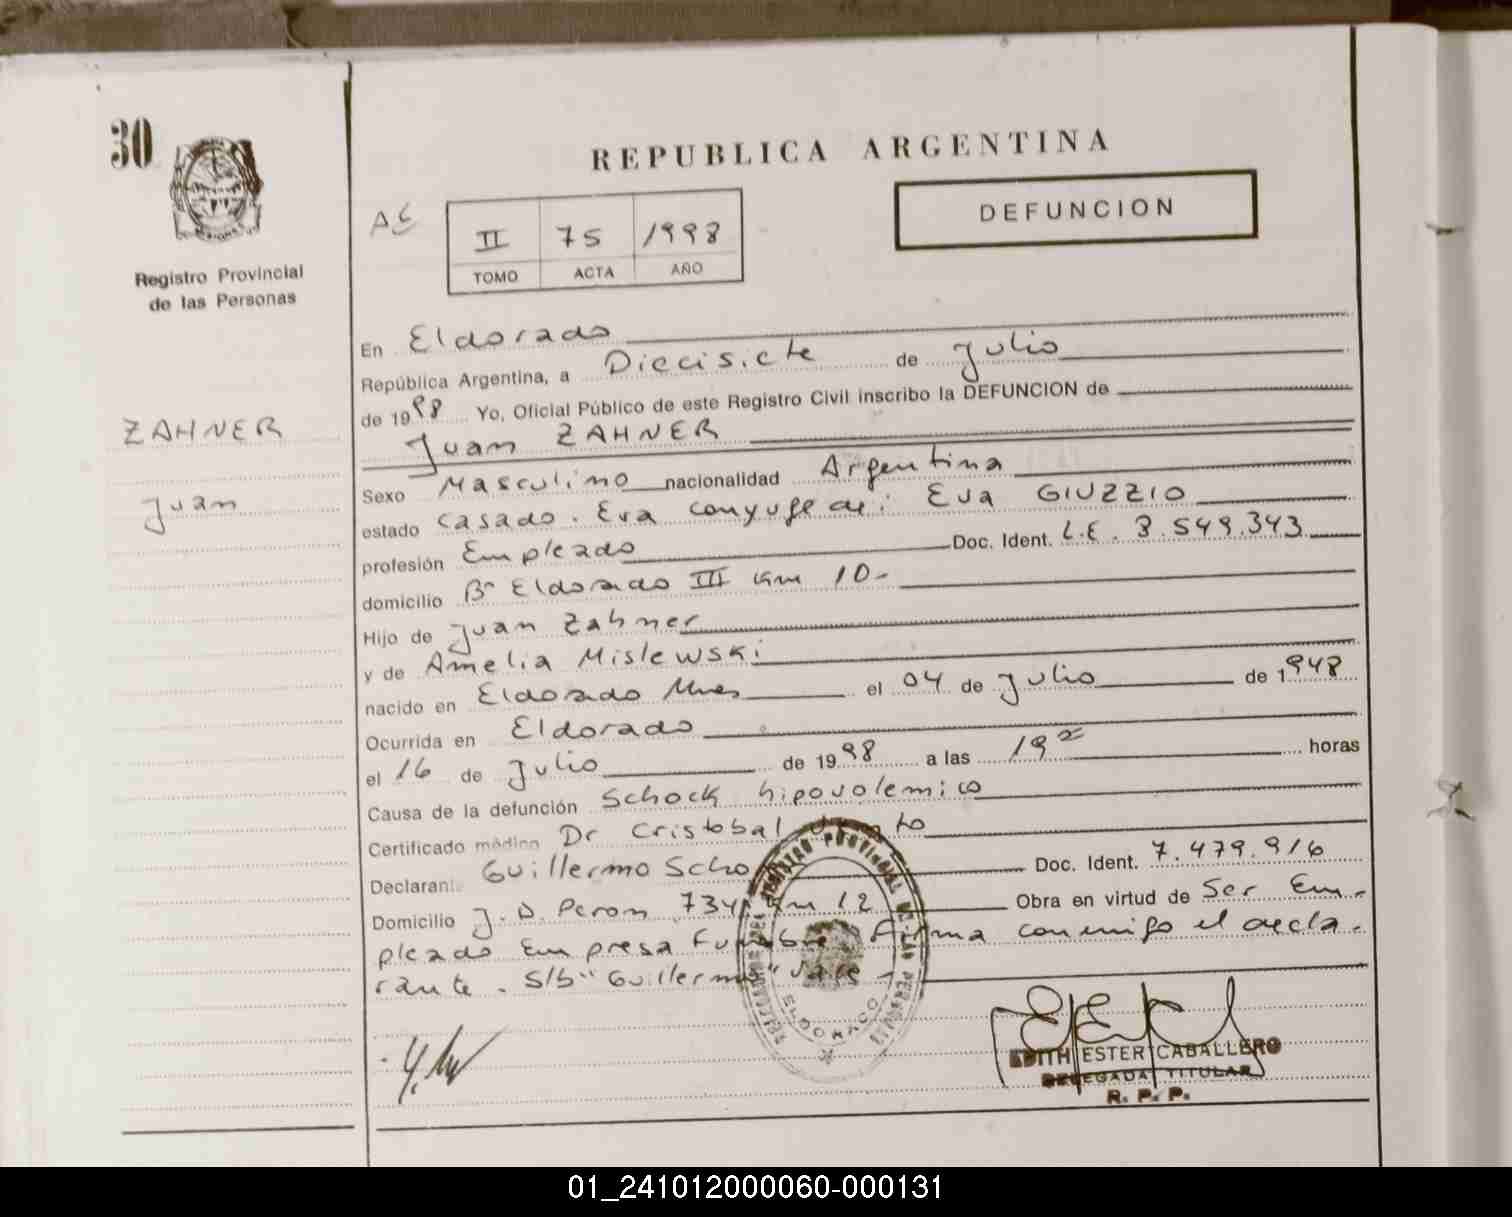 30
REPUBLICA ARGENTINA
DEFUNCION
II 75 1998
TOMO ACTA AÑO
Registro Provincial
de las Personas
ZAHNER
Juan
En Eldorado
República Argentina, a Diecisiete de Julio
de 1998 Yo, Oficial Público de este Registro Civil inscribo la DEFUNCION de
Juan ZAHNER
Sexo Masculino nacionalidad Argentina
estado Casado. Era conyuge de: Eva GIUZZIO
profesión Empleado Doc. Ident. L.E. 8.549.343
domicilio Bº Eldorado III Km 10-
Hijo de Juan Zahner
y de Amelia Mislewski
nacido en Eldorado Mnes el 04 de Julio de 1948
Ocurrida en Eldorado
el 16 de Julio de 1998 a las 19 horas
Causa de la defunción Schock hipovolemico
Certificado médico Dr Cristobal
Declarante Guillermo Doc. Ident. 7.479.916
Domicilio J. D. Peron 734 Km 12 Obra en virtud de Ser Em-
pleado Empresa Funebre Firma conmigo el decla-
rante. S/b "Guillermo" Vale
REGISTRO PROVINCIAL DE LAS PERSONAS
ELDORADO
EDITH ESTER CABALLERO
DELEGADA TITULAR
R. P. P.
01_241012000060-000131